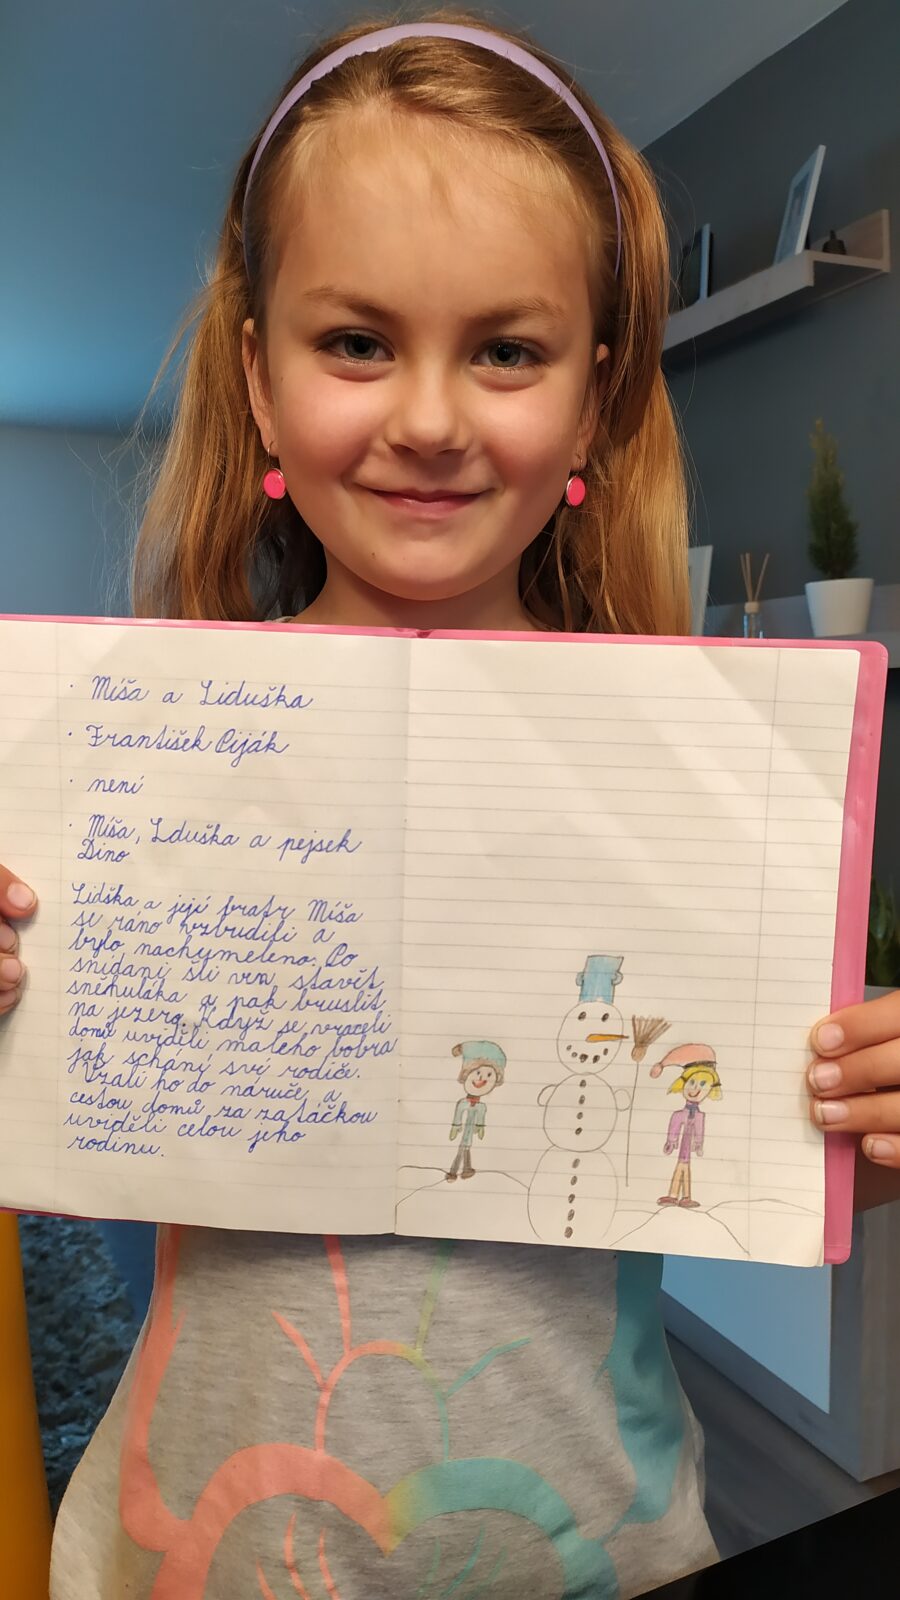 · Míša a Liduška
· František Piják
· není
· Míša, Lduška a pejsek
Dino
Lidška a její bratr Míša
se ráno vzbudili a
bylo nachumeleno. Po
snídani šli ven stavět
sněhuláka a pak bruslit
na jezero. Když se vraceli
domů uviděli malého bobra
jak schání své rodiče.
Vzali ho do náruče a
cestou domů za zatáčkou
uviděli celou jeho
rodinu.